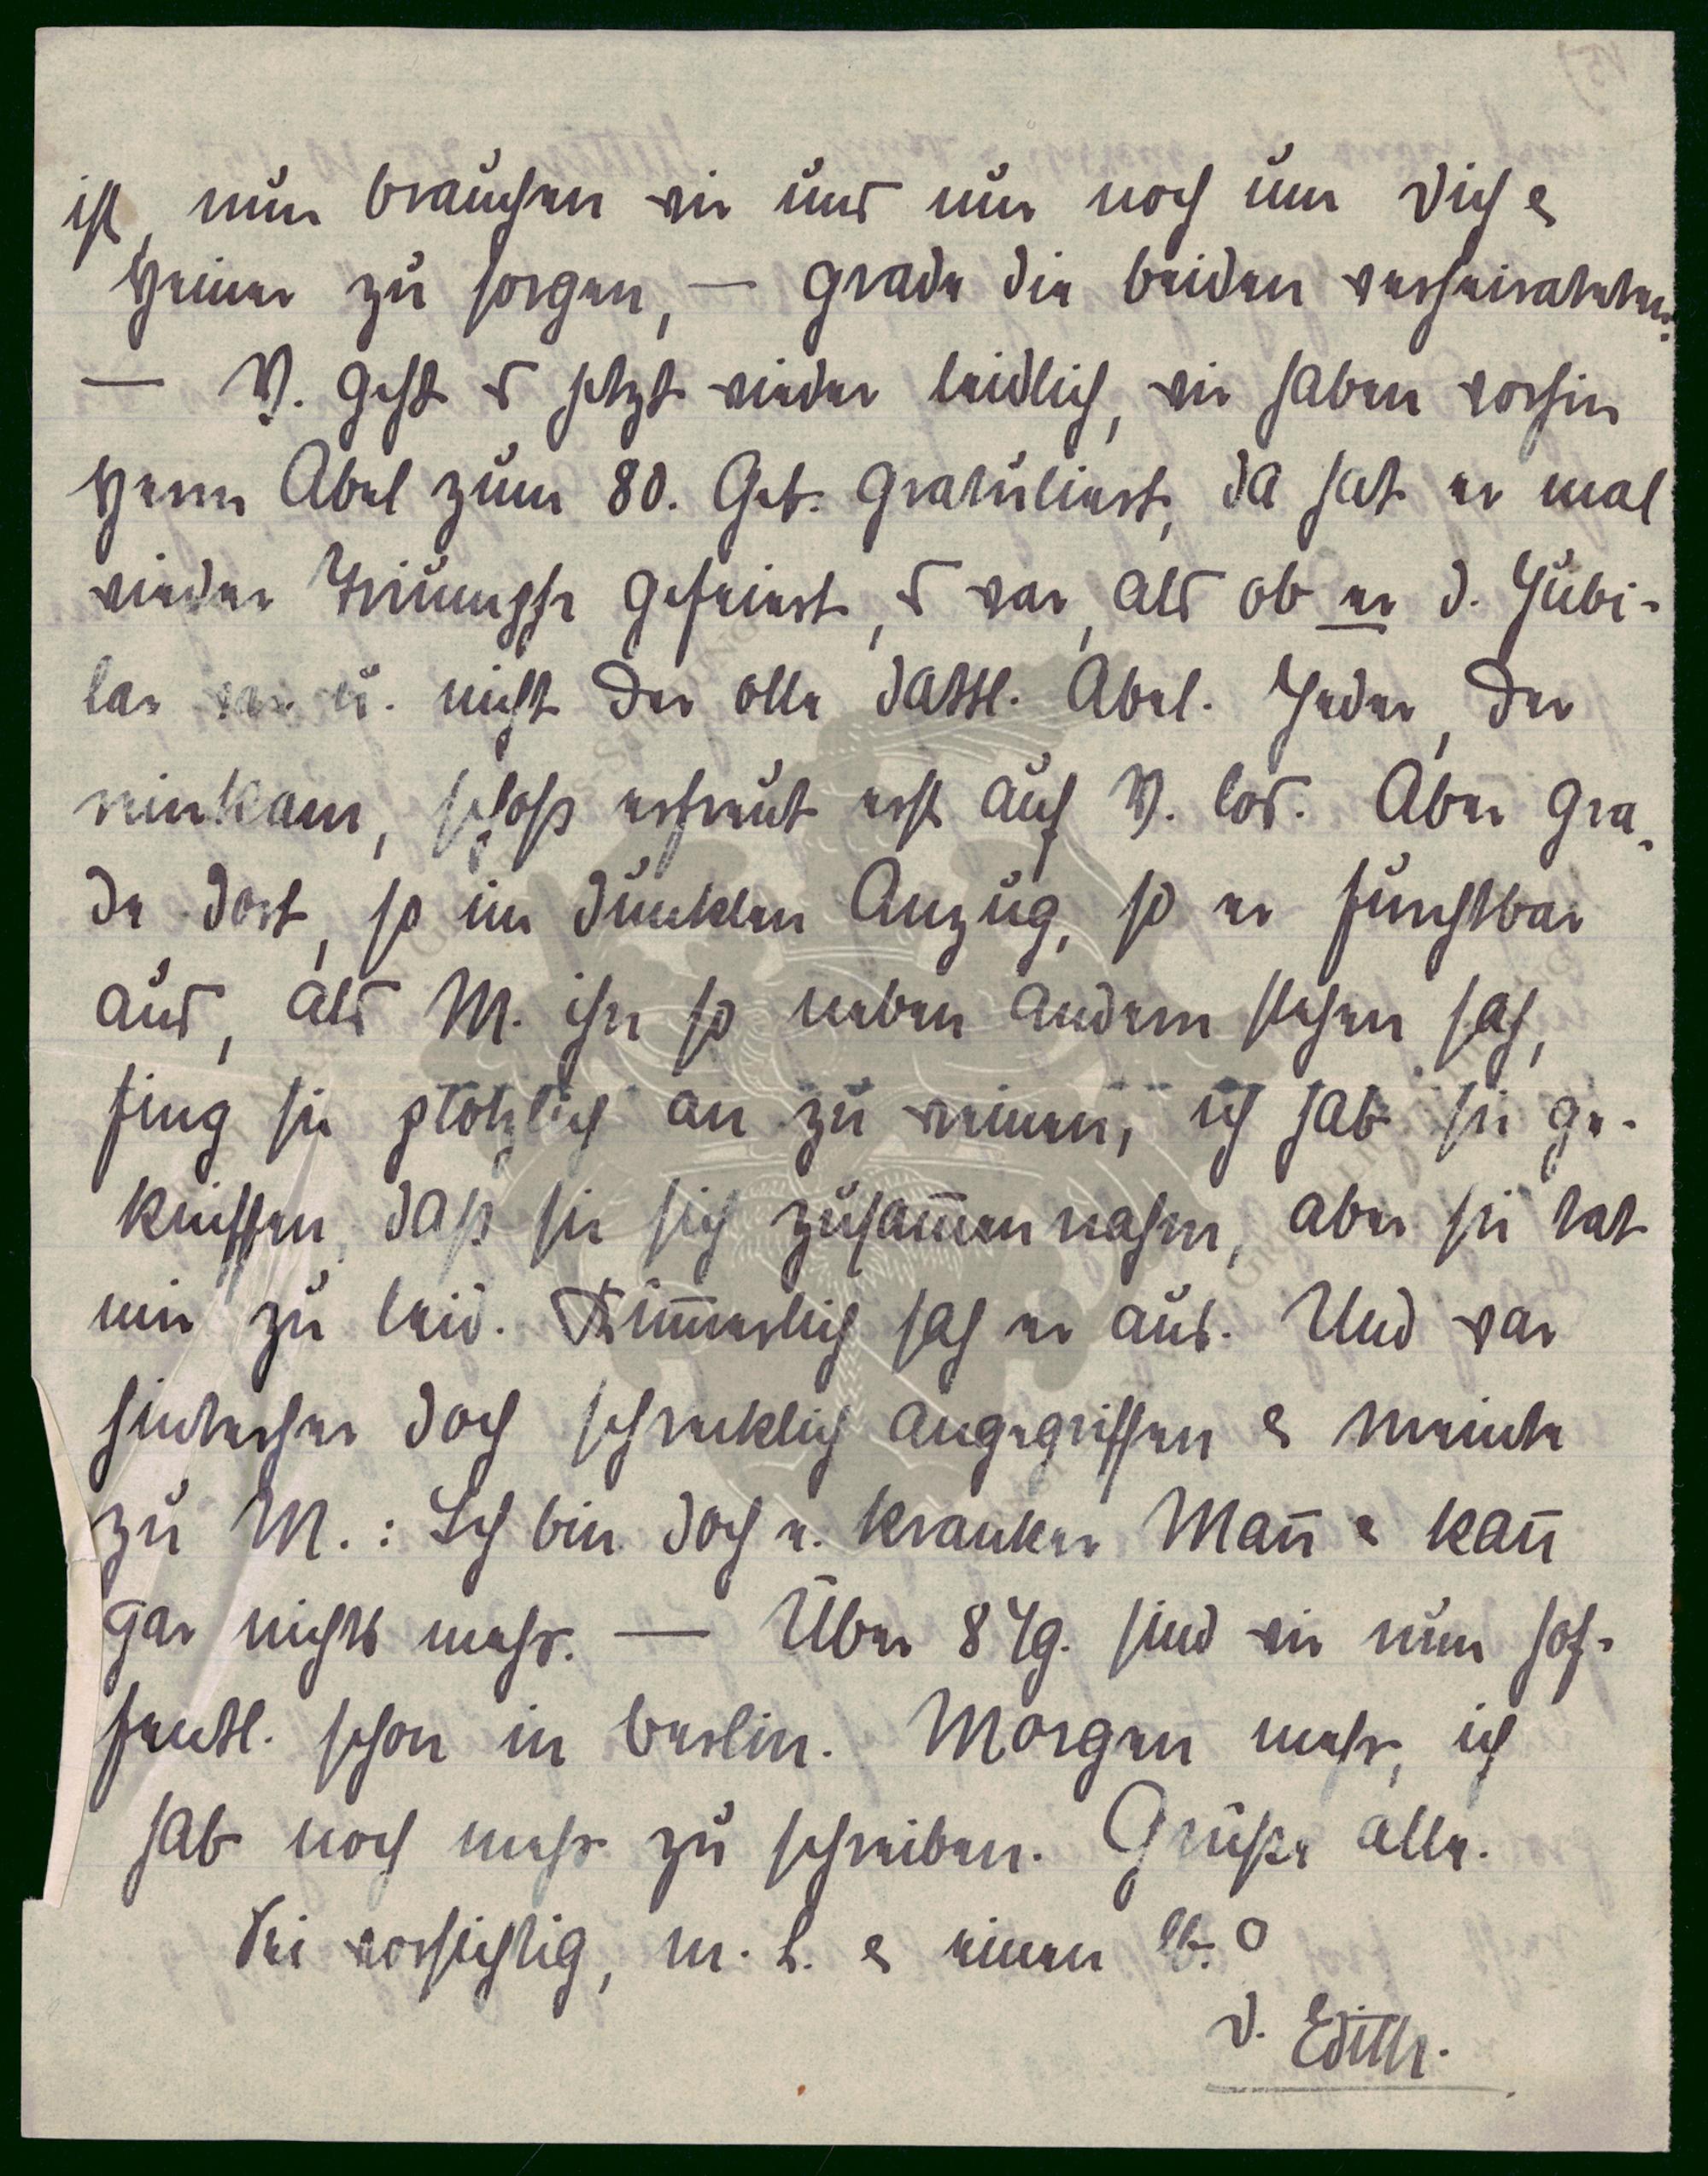 ist, nun brauchen wir uns nur noch um Dich &
Heiner zu sorgen, — grade die beiden verheirateten.
— V. geht es jetzt wieder leidlich, wir haben vorhin
Herrn Abel zum 80. Geb. gratuliert, da hat er mal
wieder Triumphe gefeiert, es war, als ob er d. Jubi-
lar war u. nicht der olle dattl. Abel. Jeder, der
reinkam, schoß erfreut erst auf V. los. Aber gra-
de dort, so im dunklen Anzug, so er furchtbar
aus, als M. ihn so neben andern stehen sah,
fing sie plötzlich an zu weinen, ich hab sie ge-
kniffen, daß sie sich zusam̅en nahm, aber sie tat
mir zu leid. Küm̅erlich sah er aus. Und war
hinterher doch schrecklich angegriffen & meinte
zu M.: Ich bin doch e. kranker Man̅ & kan̅
gar nichts mehr. — Über 8 Tg. sind wir nun hof-
fentl. schon in Berlin. Morgen mehr, ich
hab noch mehr zu schreiben. Grüße alle.
Sei vorsichtig, m. L. & einen lb. O
D. Edith.